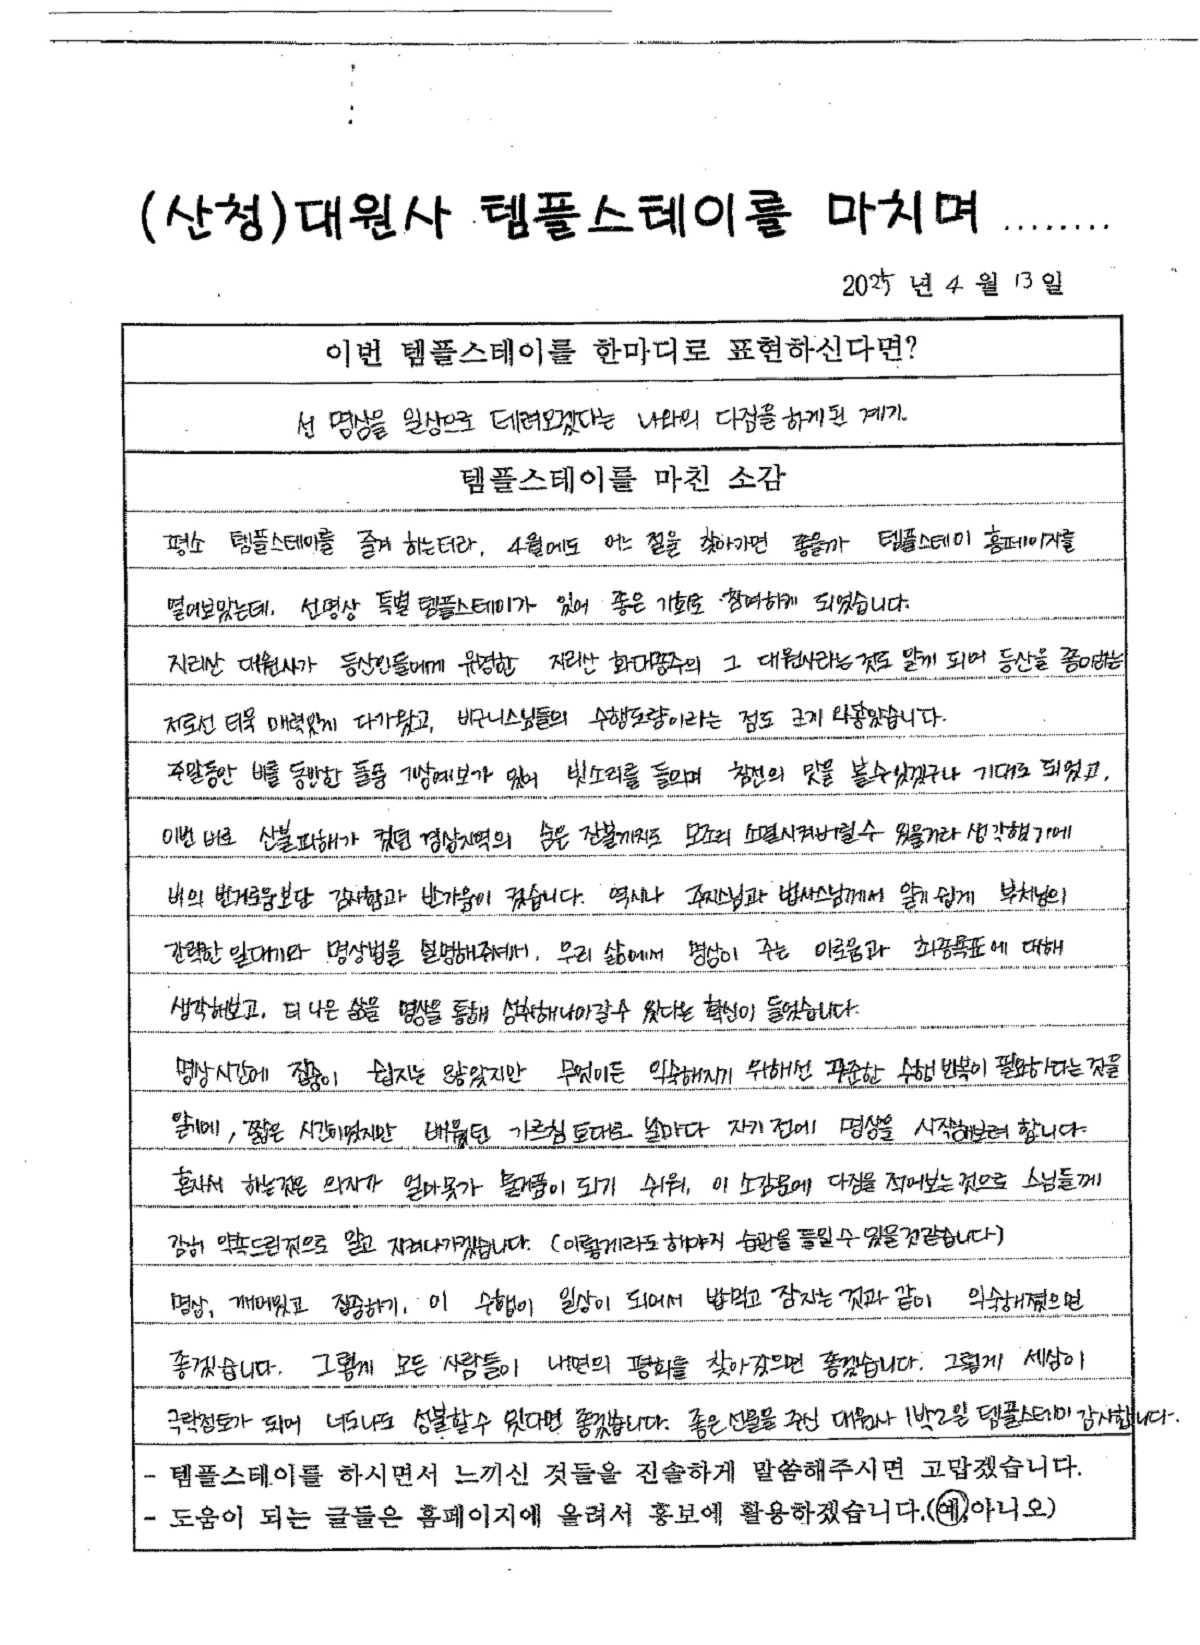 (산청)대원사 템플스테이를 마치며 ........
2025 년 4 월 13 일
이번 템플스테이를 한마디로 표현하신다면?
선 명상을 일상으로 데려오겠다는 나와의 다짐을 하게된 계기.
템플스테이를 마친 소감
평소 템플스테이를 즐겨 하는터라, 4월에도 어느 절을 찾아가면 좋을까 템플스테이 홈페이지를
열어보았는데, 선명상 특별 템플스테이가 있어 좋은 기회로 참여하게 되었습니다.
지리산 대원사가 등산인들에게 유명한 지리산 화대종주의 그 대원사라는것도 알게 되어 등산을 좋아하는
저로선 더욱 매력있게 다가왔고, 비구니스님들의 수행도량이라는 점도 크게 와닿았습니다.
주말동안 비를 동반한 돌풍 기상예보가 있어 빗소리를 들으며 참선의 맛을 볼수있겠구나 기대도 되었고,
이번 비로 산불피해가 컸던 경상지역의 숨은 잔불까지도 모조리 소멸시켜버릴수 있을거라 생각했기에
비의 번거로움보단 감사함과 반가움이 컸습니다. 역시나 주지스님과 법사스님께서 알기 쉽게 부처님의
간략한 일대기와 명상법을 설명해주셔서, 우리 삶에서 명상이 주는 이로움과 최종목표에 대해
생각해보고, 더 나은 삶을 명상을 통해 성취해나아갈수 있다는 확신이 들었습니다.
명상시간에 집중이 쉽지는 않았지만 무엇이든 익숙해지기 위해선 꾸준한 수행 반복이 필요하다는 것을
알기에, 짧은 시간이었지만 배웠던 가르침 토대로 날마다 자기 전에 명상을 시작해보려 합니다.
혼자서 하는것은 의지가 얼마못가 물거품이 되기 쉬워, 이 소감문에 다짐을 적어보는것으로 스님들께
감히 약속드린것으로 알고 지켜나가겠습니다. (이렇게라도 해야지 습관을 들일 수 있을것같습니다)
명상, 깨어있고 집중하기, 이 수행이 일상이 되어서 밥먹고 잠자는 것과 같이 익숙해졌으면
좋겠습니다. 그렇게 모든 사람들이 내면의 평화를 찾아갔으면 좋겠습니다. 그렇게 세상이
극락정토가 되어 너도나도 성불할수 있다면 좋겠습니다. 좋은선물을 주신 대원사 1박2일 템플스테이 감사합니다.
- 템플스테이를 하시면서 느끼신 것들을 진솔하게 말씀해주시면 고맙겠습니다.
- 도움이 되는 글들은 홈페이지에 올려서 홍보에 활용하겠습니다.(예,아니오)